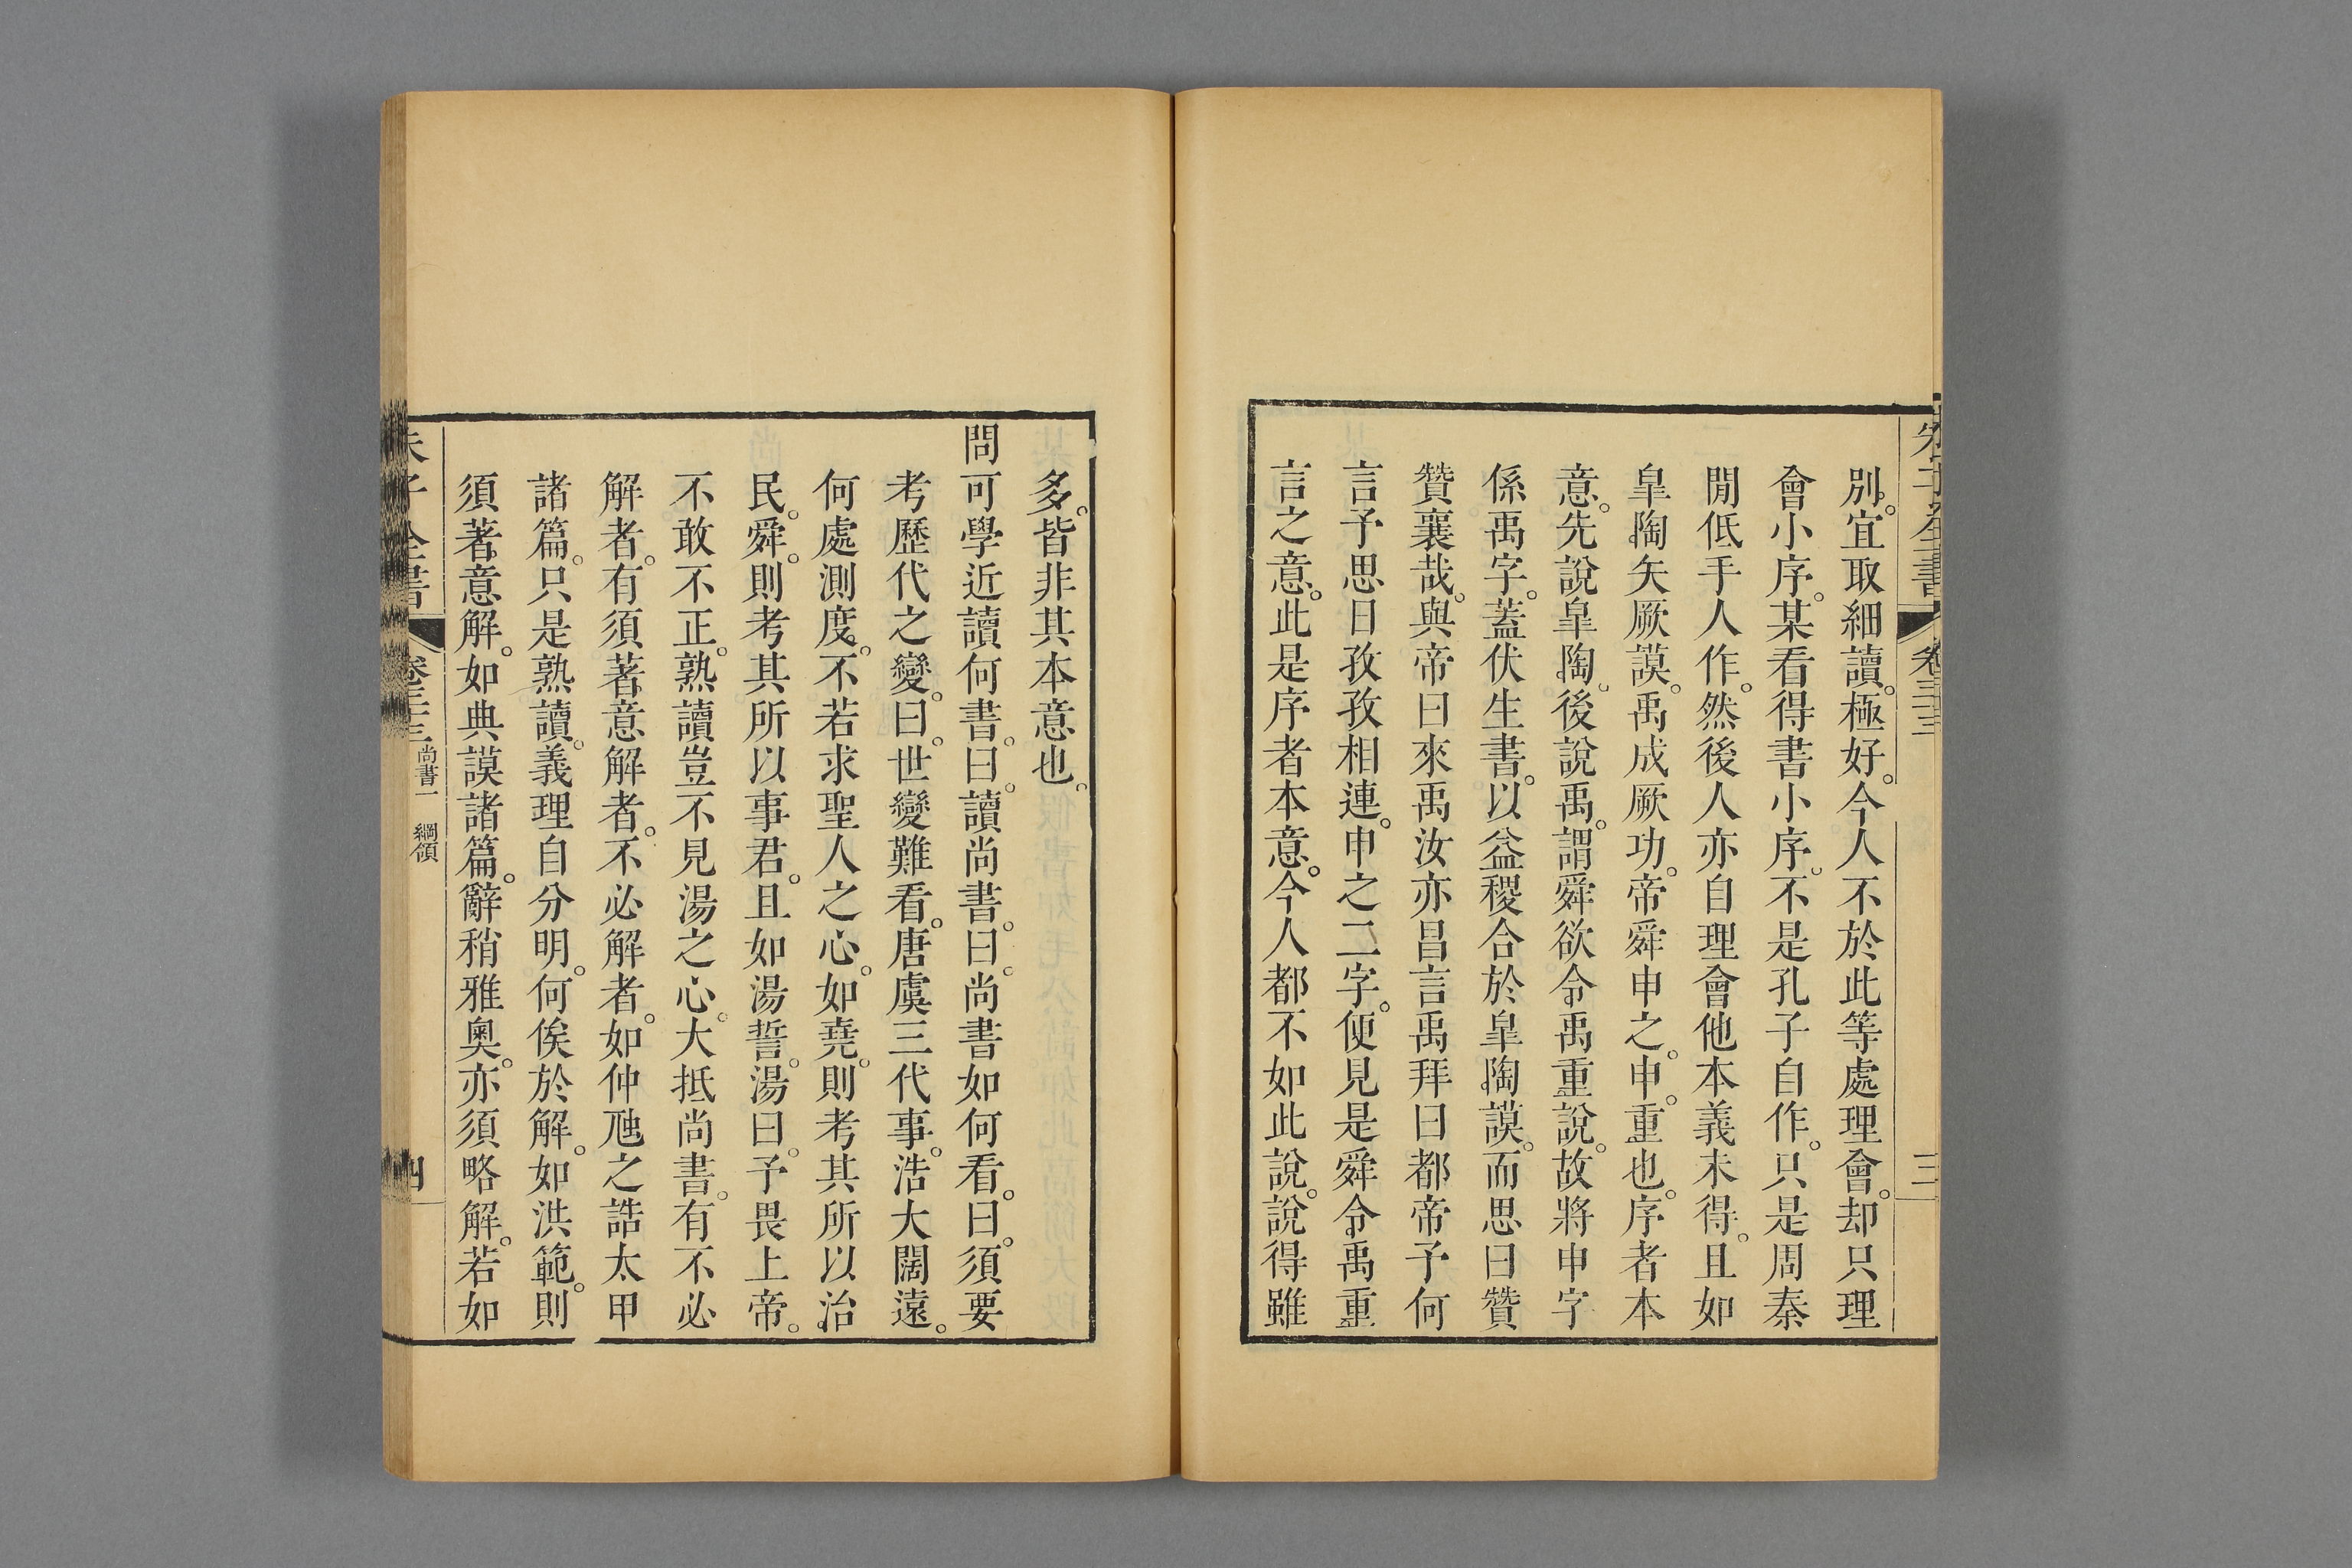 別。宜取細讀。極好。今人不於此等處理會。却只理
會小序。某看得書小序。不是孔子自作。只是周秦
閒低手人作。然後人亦自理會他本義未得。且如
皐陶矢厥謨。禹成厥功。帝舜申之。申。重也。序者本
意。先說皐陶。後說禹。謂舜欲令禹重說。故將申字
係禹字。蓋伏生書。以益稷合於皐陶謨。而思曰贊
贊襄哉。與帝曰來禹汝亦昌言禹拜曰都帝予何
言予思日孜孜相連。申之二字。便見是舜令禹重
言之意。此是序者本意。今人都不如此說。說得雖
多。皆非其本意也。
問可學近讀何書。曰。讀尚書。曰。尚書如何看。曰。須要
考歷代之變。曰。世變難看。唐虞三代事。浩大闊遠。
何處測度。不若求聖人之心。如堯。則考其所以治
民。舜。則考其所以事君。且如湯誓。湯曰。予畏上帝。
不敢不正。熟讀豈不見湯之心。大抵尚書。有不必
解者。有須著意解者。不必解者。如仲虺之誥太甲
諸篇。只是熟讀。義理自分明。何俟於解。如洪範。則
須著意解。如典謨諸篇。辭稍雅奧。亦須略解。若如
朱子全書 卷三十三 尚書一 綱領 四